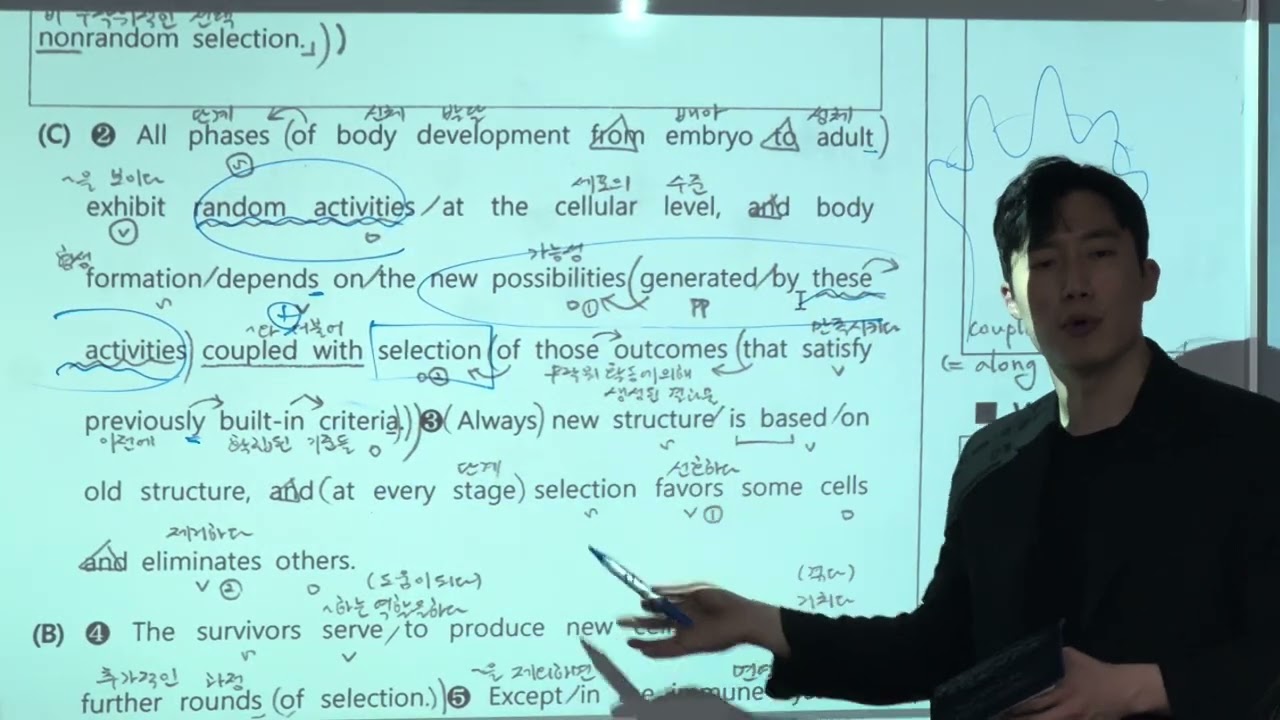 비 무작위적인 선택
nonrandom selection.」))
단계 신체 발달 배아 성체
(C) ❷ All phases (of body development from embryo to adult)
~을 보이다 세포의 수준
exhibit random activities / at the cellular level, and body
형성 가능성
formation/depends on/the new possibilities (generated/by these
~와 더불어 만족시키다
activities) coupled with selection (of those outcomes (that satisfy
무작위 활동에 의해
생성된 결과물
previously built-in criteria.))) ❸ (Always) new structure/is based/on
이전에 확립된 기준들
단계 선호하다
old structure, and (at every stage) selection favors some cells
제거하다
and eliminates others.
(도움이 되다) (죽다)
~하는 역할을 하다 거치다
(B) ❹ The survivors serve/to produce new
추가적인 과정 ~을 제외하면
further rounds (of selection.) ❺ Except/in immune
coupl
(= along